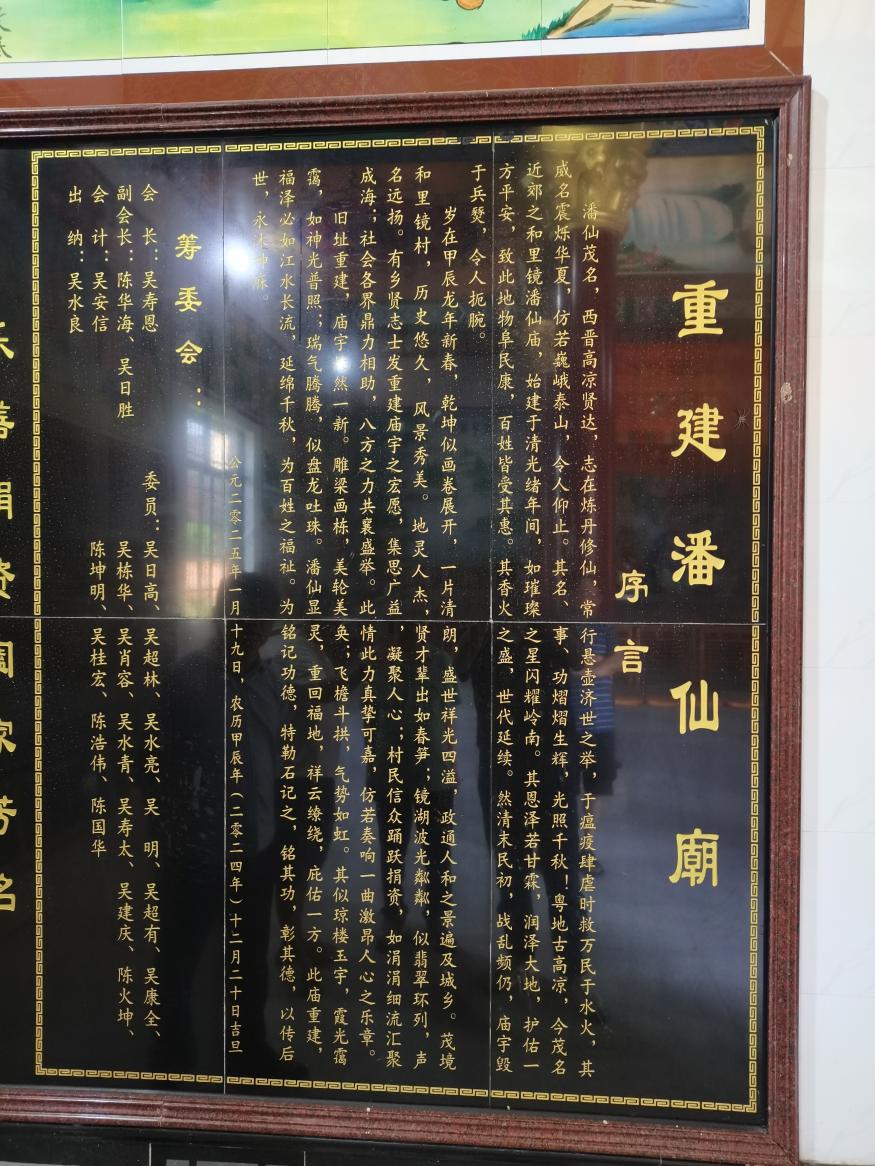 重建潘仙廟
序言
潘仙茂名，西晋高凉贤达，志在炼丹修仙，常行悬壶济世之举，于瘟疫肆虐时救万民于水火，其
威名震烁华夏，仿若巍峨泰山，令人仰止。其名、事、功熠熠生辉，光照千秋！粤地古高凉，今茂名
近郊之和里镜潘仙庙，始建于清光绪年间，如璀璨之星闪耀岭南。其恩泽若甘霖，润泽大地，护佑一
方平安，致此地物阜民康，百姓皆受其惠。其香火之盛，世代延续。然清末民初，战乱频仍，庙宇毁
于兵燹，令人扼腕。
岁在甲辰龙年新春，乾坤似画卷展开，一片清朗，盛世祥光四溢，政通人和之景遍及城乡。茂境
和里镜村，历史悠久，风景秀美。地灵人杰，贤才辈出如春笋；镜湖波光粼粼，似翡翠环列，声
名远扬。有乡贤志士发重建庙宇之宏愿，集思广益，凝聚人心；村民信众踊跃捐资，如涓涓细流汇聚
成海；社会各界鼎力相助，八方之力共襄盛举。此情此力真挚可嘉，仿若奏响一曲激昂人心之乐章。
旧址重建，庙宇焕然一新。雕梁画栋，美轮美奂；飞檐斗拱，气势如虹。其似琼楼玉宇，霞光霭
霭，如神光普照；瑞气腾腾，似盘龙吐珠。潘仙显灵，重回福地，祥云缭绕，庇佑一方。此庙重建，
福泽必如江水长流，延绵千秋，为百姓之福祉。为铭记功德，特勒石记之，铭其功，彰其德，以传后
世，永沐神脉。
公元二零二五年一月十九日，农历甲辰年（二零二四年）十二月二十日吉旦
筹委会：
会长：吴寿恩
副会长：陈华海、吴日胜
会计：吴安信
出纳：吴水良
委员：吴日高、吴超林、吴水亮、吴明、吴超有、吴康全、
吴栋华、吴肖容、吴水青、吴寿太、吴建庆、陈火坤、
陈坤明、吴桂宏、陈浩伟、陈国华
善捐资
芳名